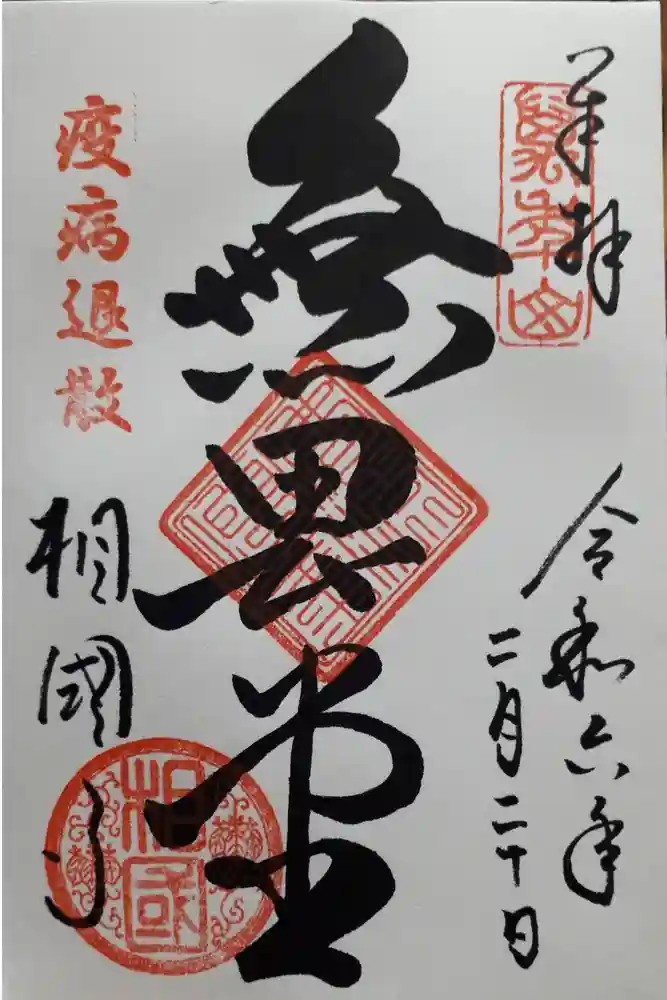 奉拝
萬年山
令和六年
二月二十日
無畏堂
疫病退散
相國寺
相國